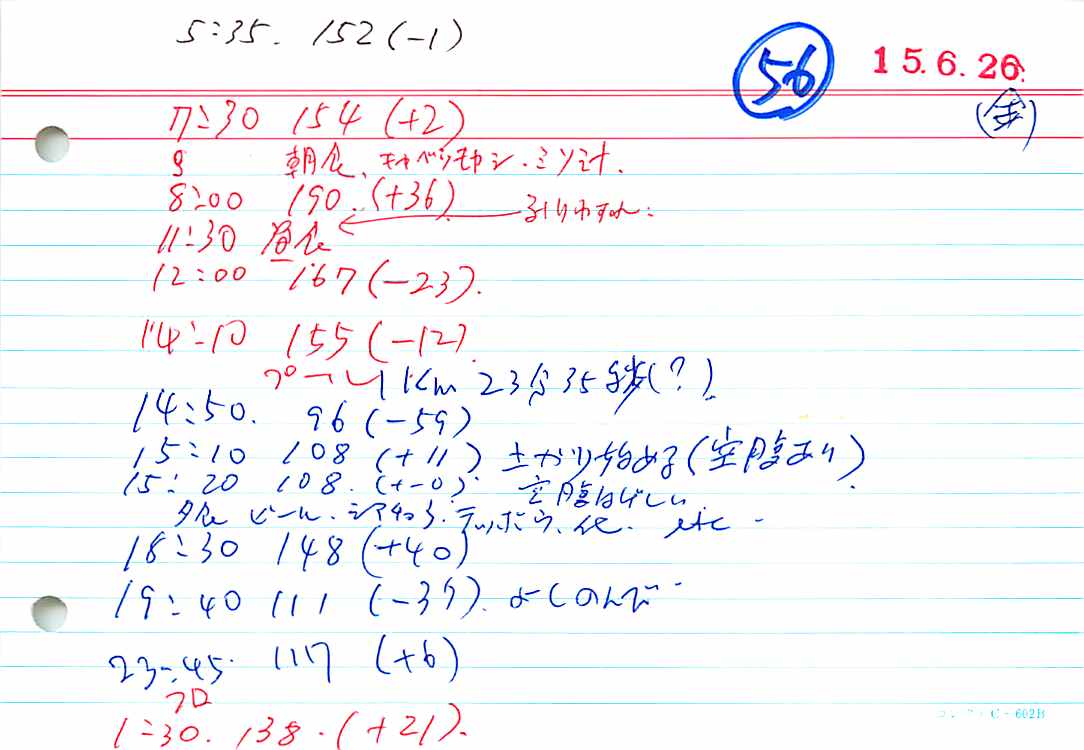 5:35. 152 (-1)
56
15.6.26
(金)
7:30 154 (+2)
8 朝食、キャベツモヤシ・ミソ汁.
8:00 190. (+36)
11:30 昼食
12:00 167 (-23).
14:10 155 (-12).
プール 1Km 23分35秒(?).
14:50. 96 (-59)
15:10 108 (+11) 上がり始める(空腹あり).
15:20 108. (+-0). 空腹はげしい
夕食 ビール、etc-
18:30 148 (+40)
19:40 111 (-37).
23:45. 117 (+6)
フロ
1:30. 138. (+21).
C-602B